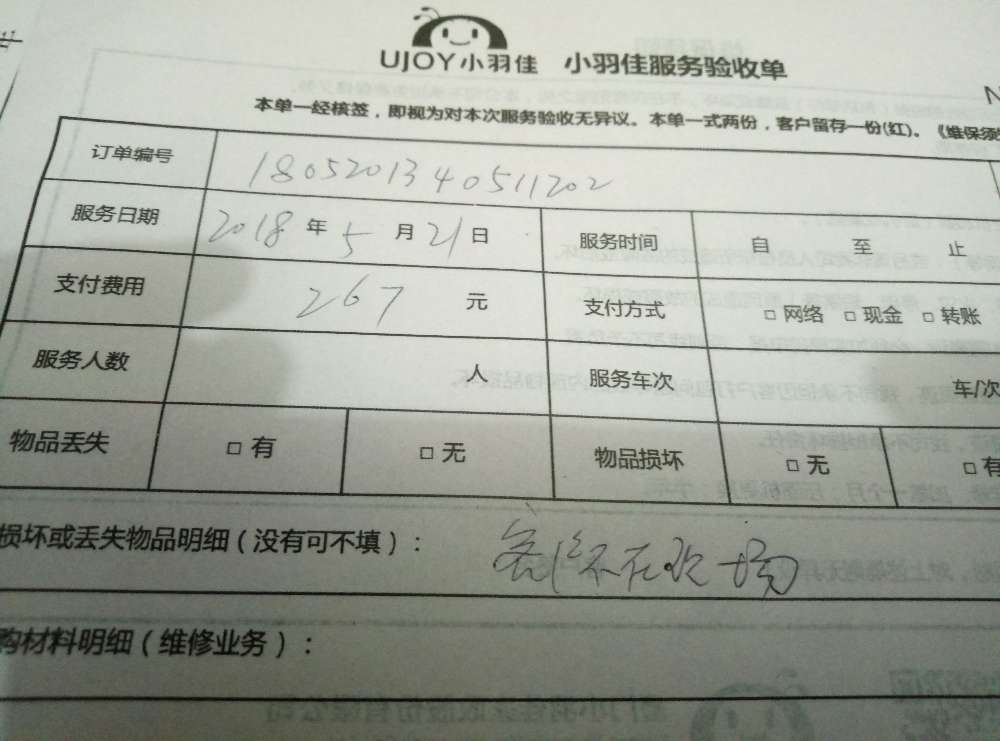 UJOY小羽佳 小羽佳服务验收单
N
本单一经核签，即视为对本次服务验收无异议。本单一式两份，客户留存一份(红)。《维保须
订单编号 1805201340511202
服务日期 2018 年 5 月 21 日 服务时间 自 至 止
支付费用 267 元 支付方式 □ 网络 □ 现金 □ 转账
服务人数 人 服务车次 车/次
物品丢失 □ 有 □ 无 物品损坏 □ 无 □ 有
损坏或丢失物品明细（没有可不填）： 不在现场
购材料明细（维修业务）：